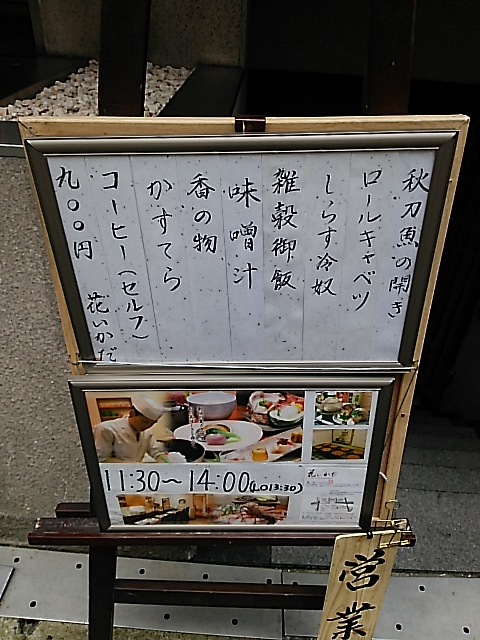 秋刀魚の開き
ロールキャベツ
しらす冷奴
雑穀御飯
味噌汁
香の物
かすてら
コーヒー(セルフ)
九〇〇円
花いかだ
11:30〜14:00(L.O13:30)
花いかだ
営業